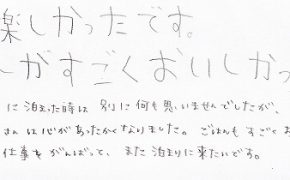 楽しかったです。
ーがすごくおいしかっ
に泊まった時は 別に何も思いませんでしたが、
さんは心があったかくなりました。ごはんもすごくお
仕事をがんばって、また泊まりに来たいです。